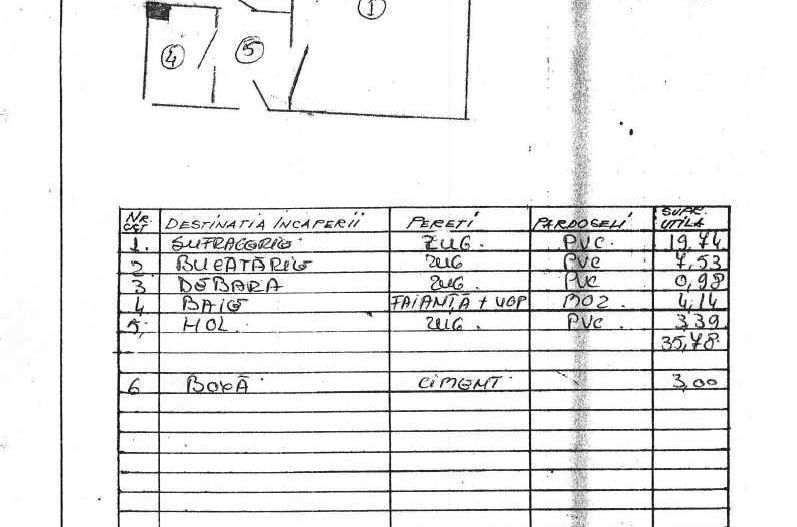 1
4 5
NR. CRT DESTINAȚIA ÎNCAPERII PEREȚI PARDOSELI SUPR. UTILĂ
1. SUFRAGERIE ZUG. PVC. 19,74
2 BUCĂTĂRIE ZUG PVC 7,53
3 DEBARA ZUG. PVC 0,98
4 BAIE FAIANȚĂ + UOP MOZ. 4,14
5, HOL. ZUG. PVC. 3,39
35,78
6 BOXĂ CIMENT 3,00